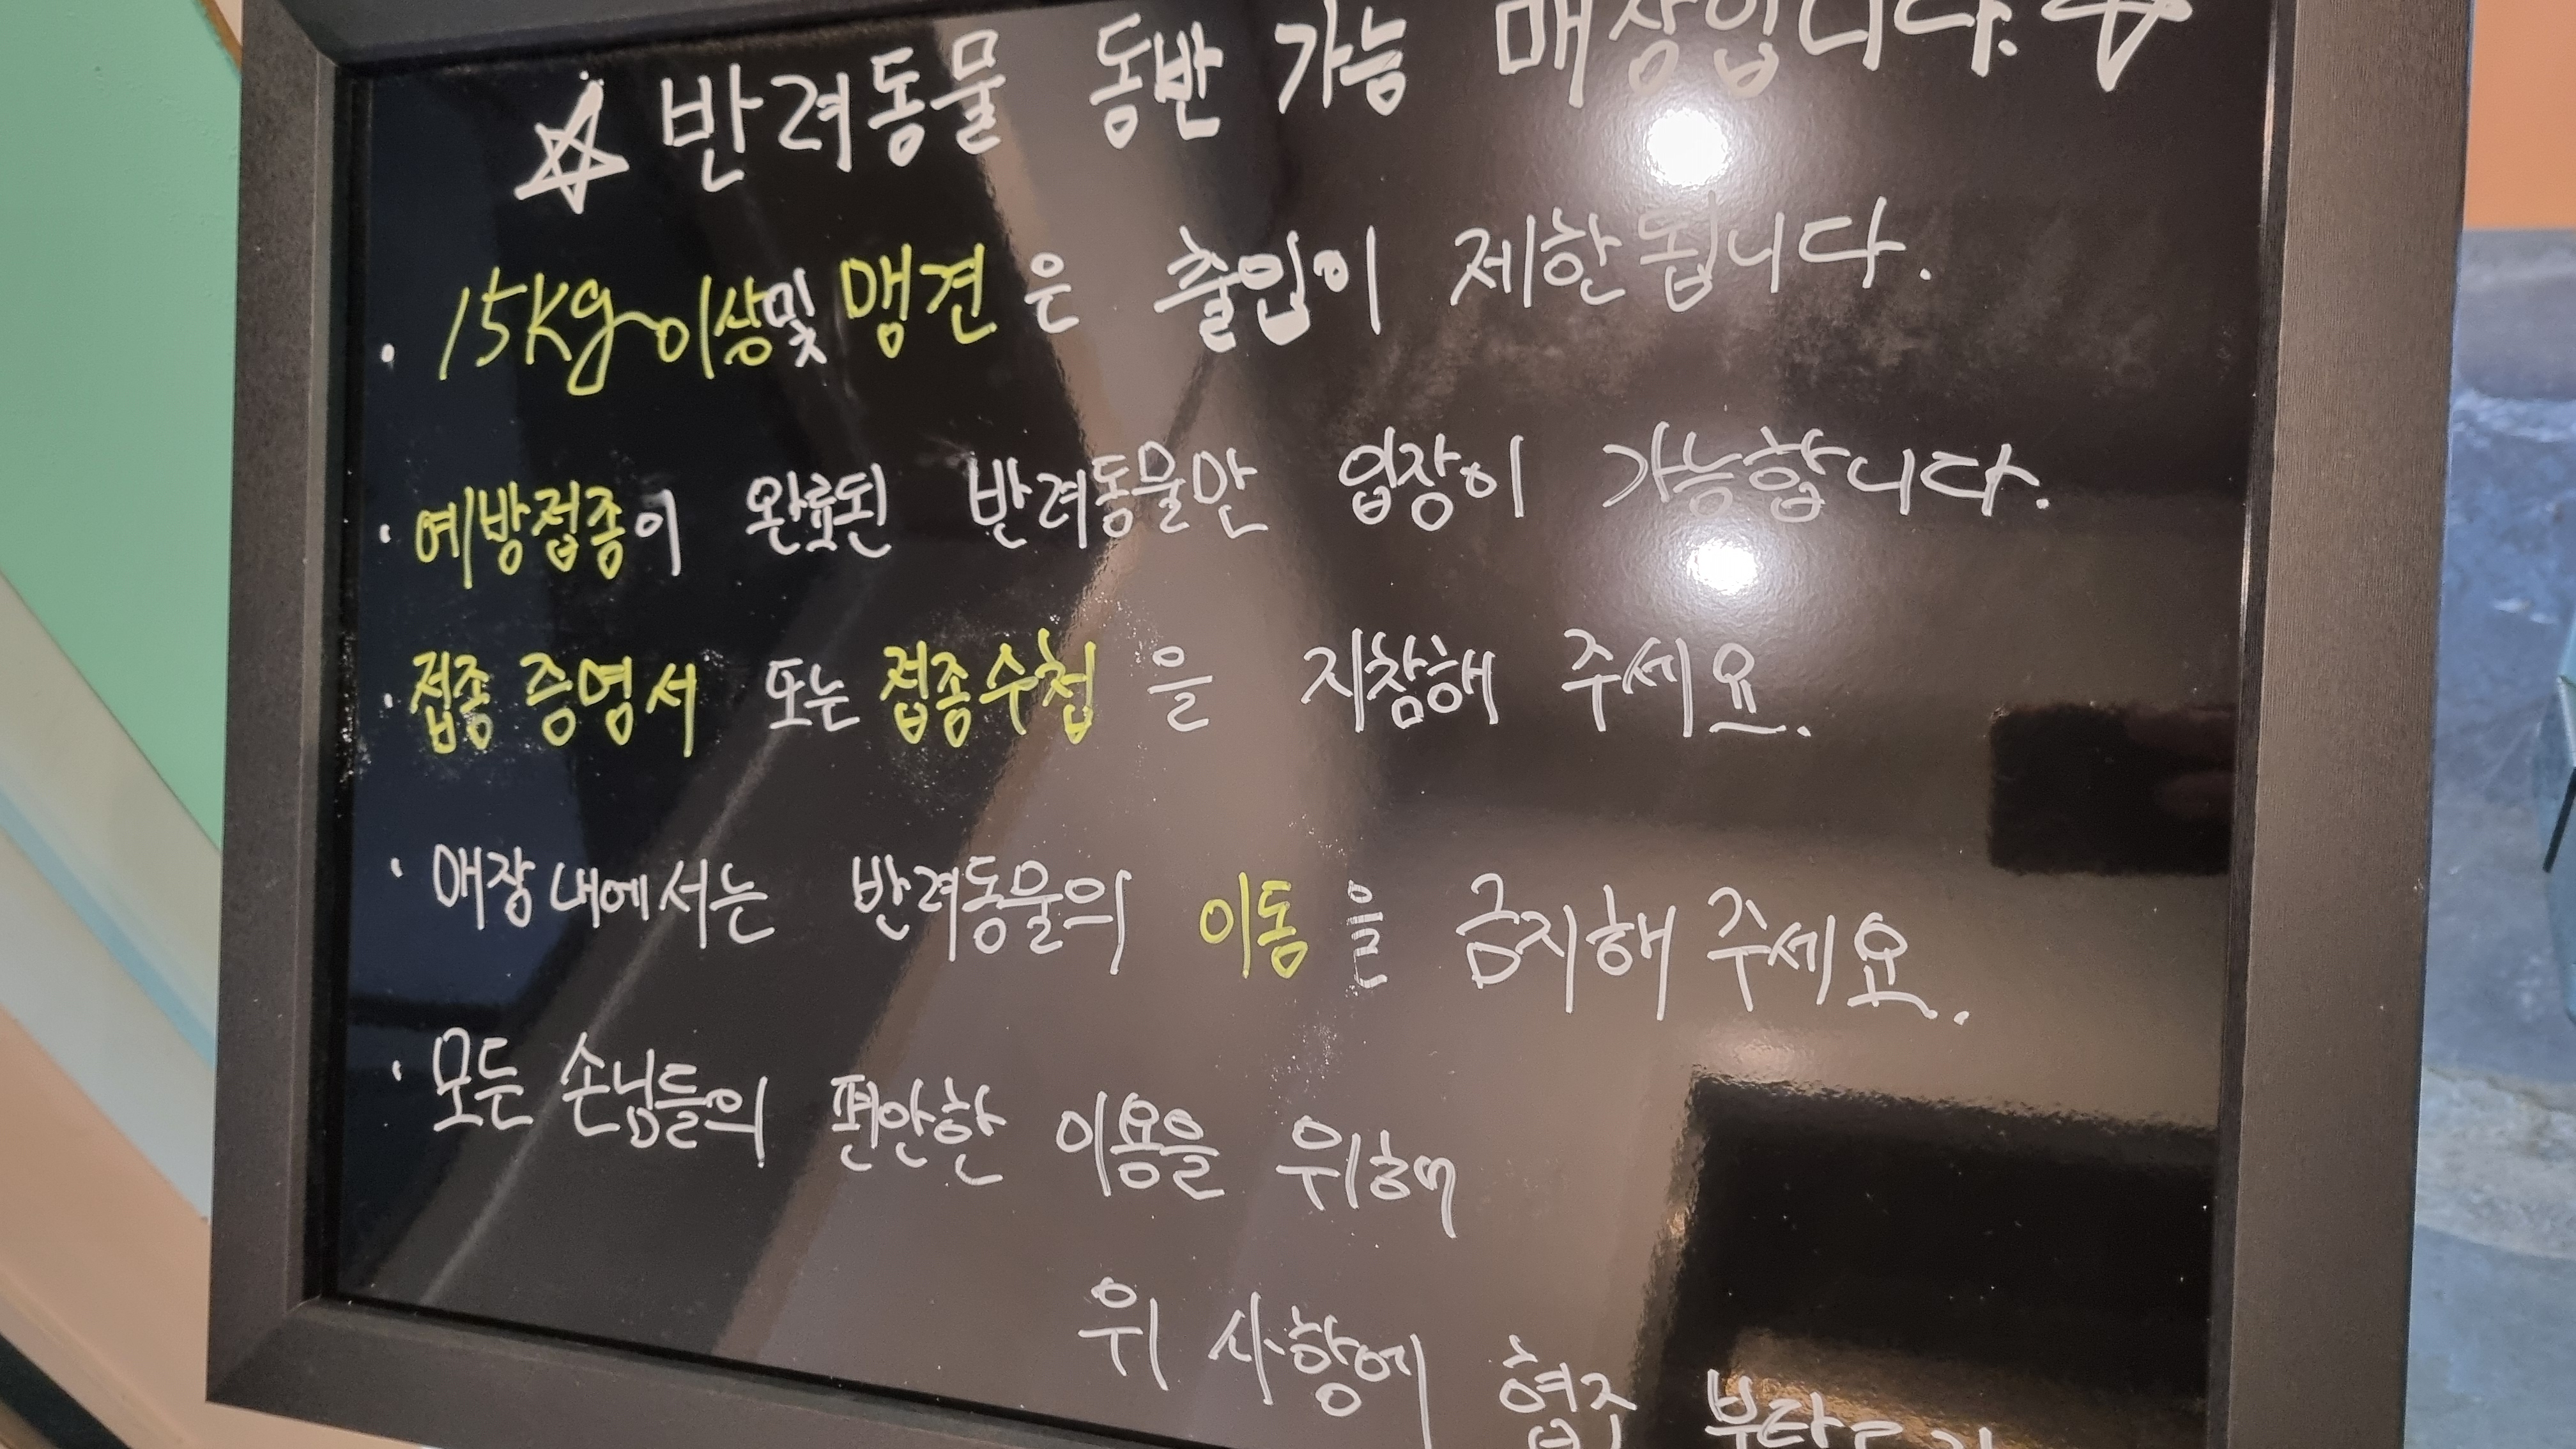 ☆ 반려동물 동반 가능 매장입니다. ☆
· 15kg 이상 및 맹견은 출입이 제한됩니다.
· 예방접종이 완료된 반려동물만 입장이 가능합니다.
· 접종 증명서 또는 접종수첩을 지참해 주세요.
· 매장 내에서는 반려동물의 이동을 금지해 주세요.
· 모든 손님들의 편안한 이용을 위해
위 사항에 협조